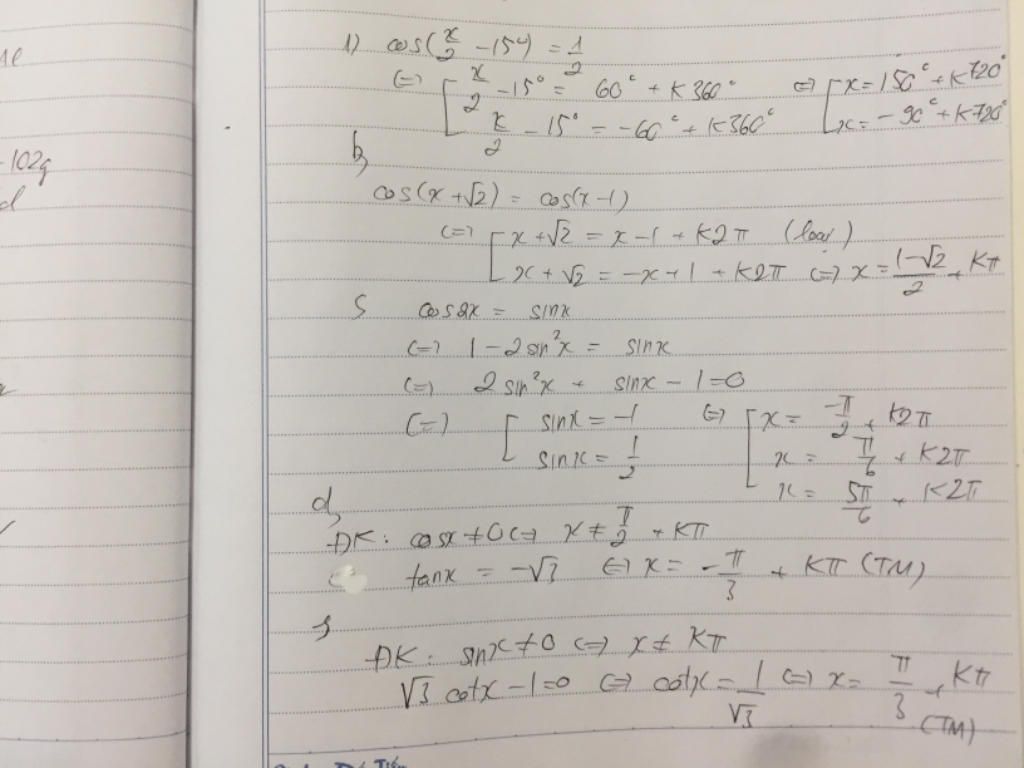 1) cos(x/2 - 15°) = 1/2
<=> [ x/2 - 15° = 60° + K360° <=> [ x = 150° + K720°
x/2 - 15° = -60° + K360° x = -90° + K720°
b,
cos(x + √2) = cos(x - 1)
<=> [ x + √2 = x - 1 + K2π (loại)
x + √2 = -x + 1 + K2π <=> x = (1-√2)/2 + Kπ
cos2x = sinx
<=> 1 - 2sin²x = sinx
<=> 2sin²x + sinx - 1 = 0
<=> [ sinx = -1 <=> [ x = -π/2 + K2π
sinx = 1/2 x = π/6 + K2π
x = 5π/6 + K2π
d,
ĐK: cosx ≠ 0 <=> x ≠ π/2 + Kπ
tanx = -√3 <=> x = -π/3 + Kπ (TM)
ĐK: sinx ≠ 0 <=> x ≠ Kπ
√3 cotx - 1 = 0 <=> cotx = 1/√3 <=> x = π/3 + Kπ
(TM)
-102g